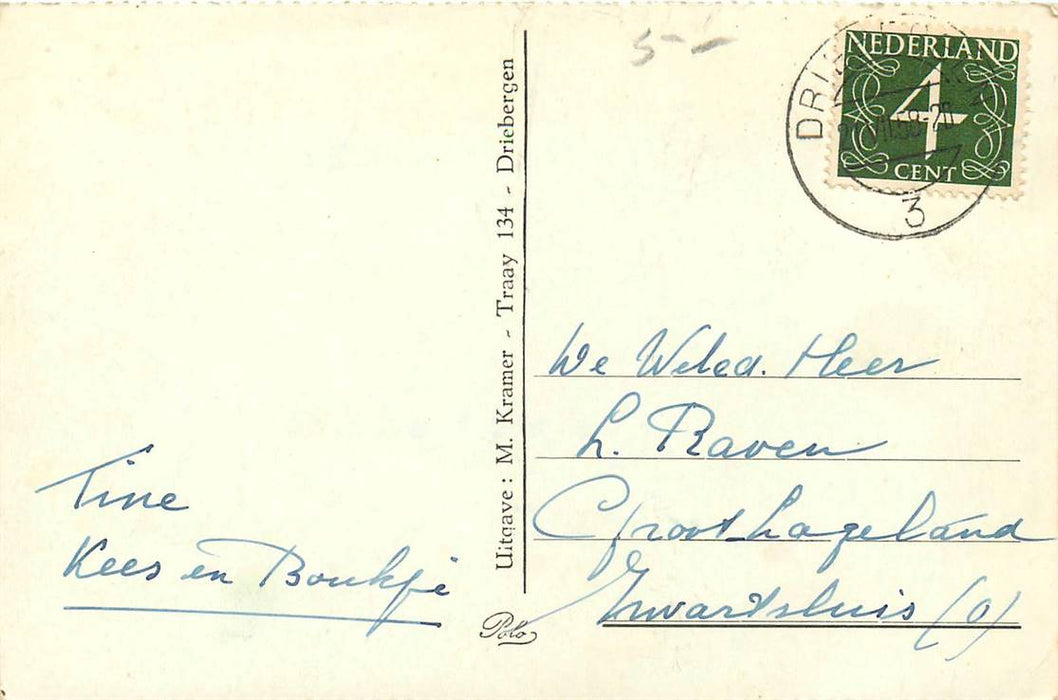 5-
NEDERLAND
4
CENT
3
Uitgave: M. Kramer - Traay 134 - Driebergen
De Weled. Heer
L. Raven
Groot Lageland
Zwartsluis (O)
Tine
Kees en Boukje
Polo